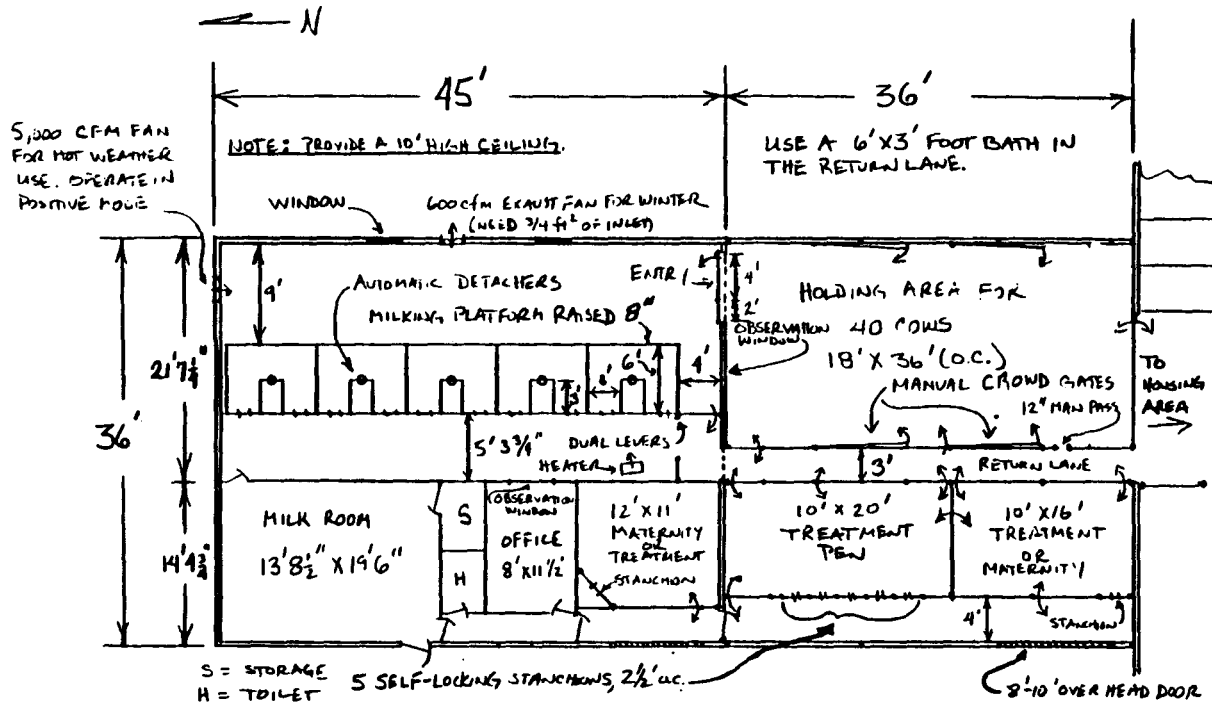 N
45'
36'
5,000 CFM FAN
FOR HOT WEATHER
USE. OPERATE IN
POSITIVE MODE
NOTE: PROVIDE A 10' HIGH CEILING.
USE A 6' X 3' FOOT BATH IN
THE RETURN LANE.
WINDOW
600 cfm EXAUST FAN FOR WINTER
(NEED 3/4 ft² OF INLET)
9'
AUTOMATIC DETACHERS
MILKING PLATFORM RAISED 8"
ENTRY
4'
2'
HOLDING AREA FOR
40 COWS
18' X 36' (O.C.)
OBSERVATION
WINDOW
MANUAL CROWD GATES
12" MAN PASS
TO
HOUSING
AREA
21' 7 1/4"
36'
14' 4 3/4"
6'
4'
3'
5' 3 3/4"
DUAL LEVERS
HEATER
3'
RETURN LANE
MILK ROOM
13' 8 1/2" X 19' 6"
S
H
OBSERVATION
WINDOW
OFFICE
8' X 11 1/2'
12' X 11'
MATERNITY
OR
TREATMENT
STANCHION
10' X 20'
TREATMENT
PEN
10' X 16'
TREATMENT
OR
MATERNITY
4'
STANCHION
S = STORAGE
H = TOILET
5 SELF-LOCKING STANCHIONS, 2 1/2' o.c.
8'-10' OVER HEAD DOOR